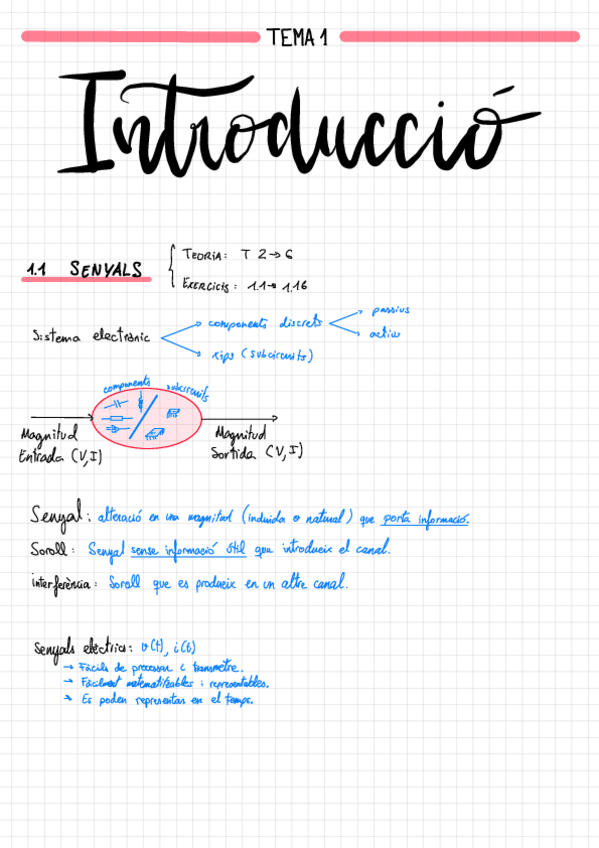 TEMA 1
Introducció
1.1 SENYALS
TEORIA: T 2→6
EXERCICIS: 1.1→1.16
Sistema electrònic
components discrets
passius
actius
xips (subcircuits)
components
subcircuits
Magnitud
Entrada (V,I)
Magnitud
Sortida (V,I)
Senyal: alteració en una magnitud (induida o natural) que porta informació.
Soroll: Senyal sense informació útil que introdueix el canal.
interferència: Soroll que es produeix en un altre canal.
Senyals elèctrics: v(t), i(t)
→ Fàcils de processar i transmetre.
→ Fàcilment matematitzables i representables.
→ Es poden representar en el temps.